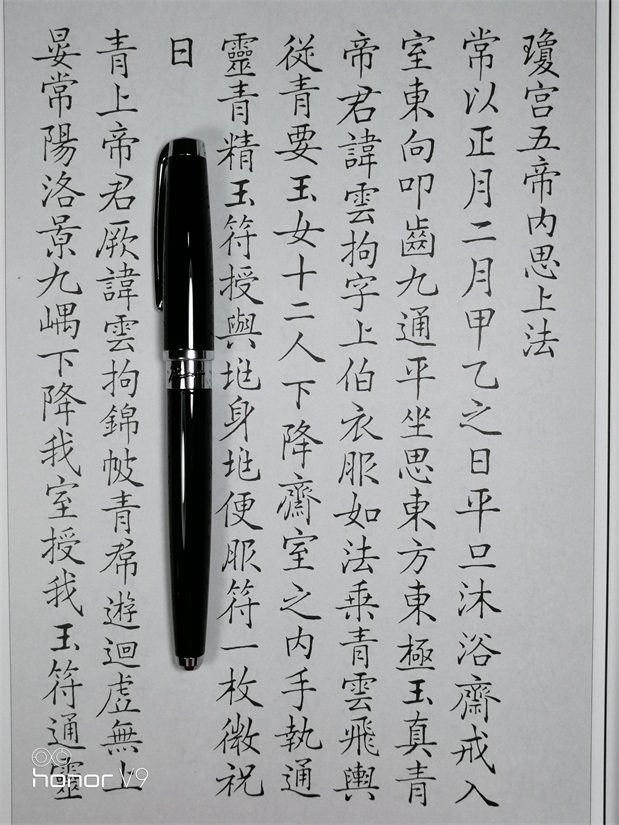 瓊宫五帝内思上法
常以正月二月甲乙之日平旦沐浴齋戒入
室東向叩齒九通平坐思東方東極玉真青
帝君諱雲拘字上伯衣服如法乘青雲飛輿
從青要玉女十二人下降齋室之内手執通
靈青精玉符授與兆身兆便服符一枚微祝
曰
青上帝君厥諱雲拘錦帔青帬遊迴虚無上
晏常陽洛景九嵎下降我室授我玉符通靈
honor V9